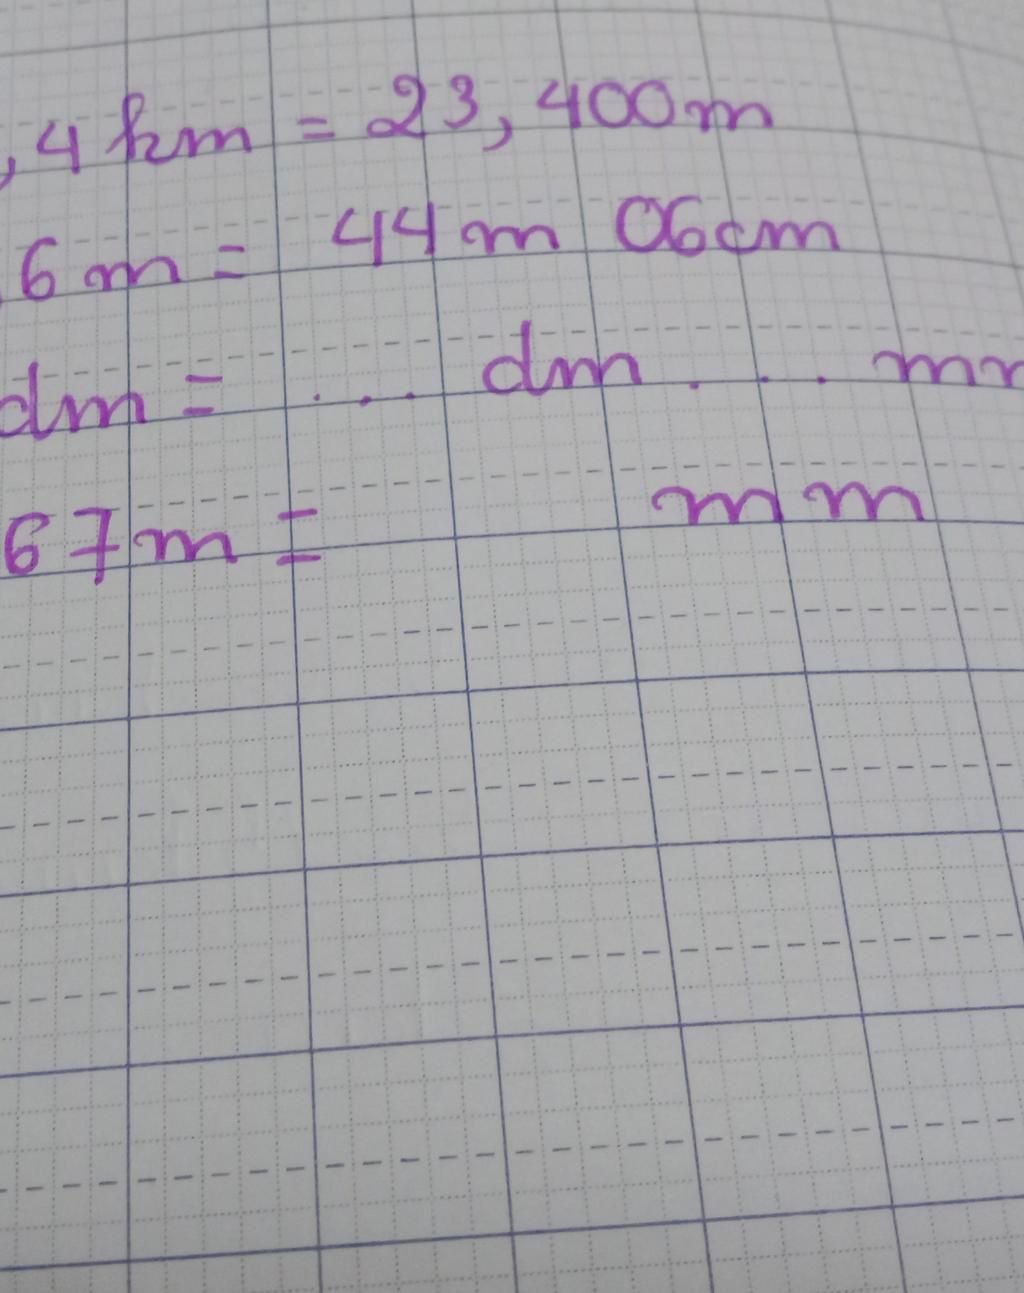 ,4 km = 23,400m
,6 m = 44 m 06cm
dm = ... dm ... mm
67m = mm